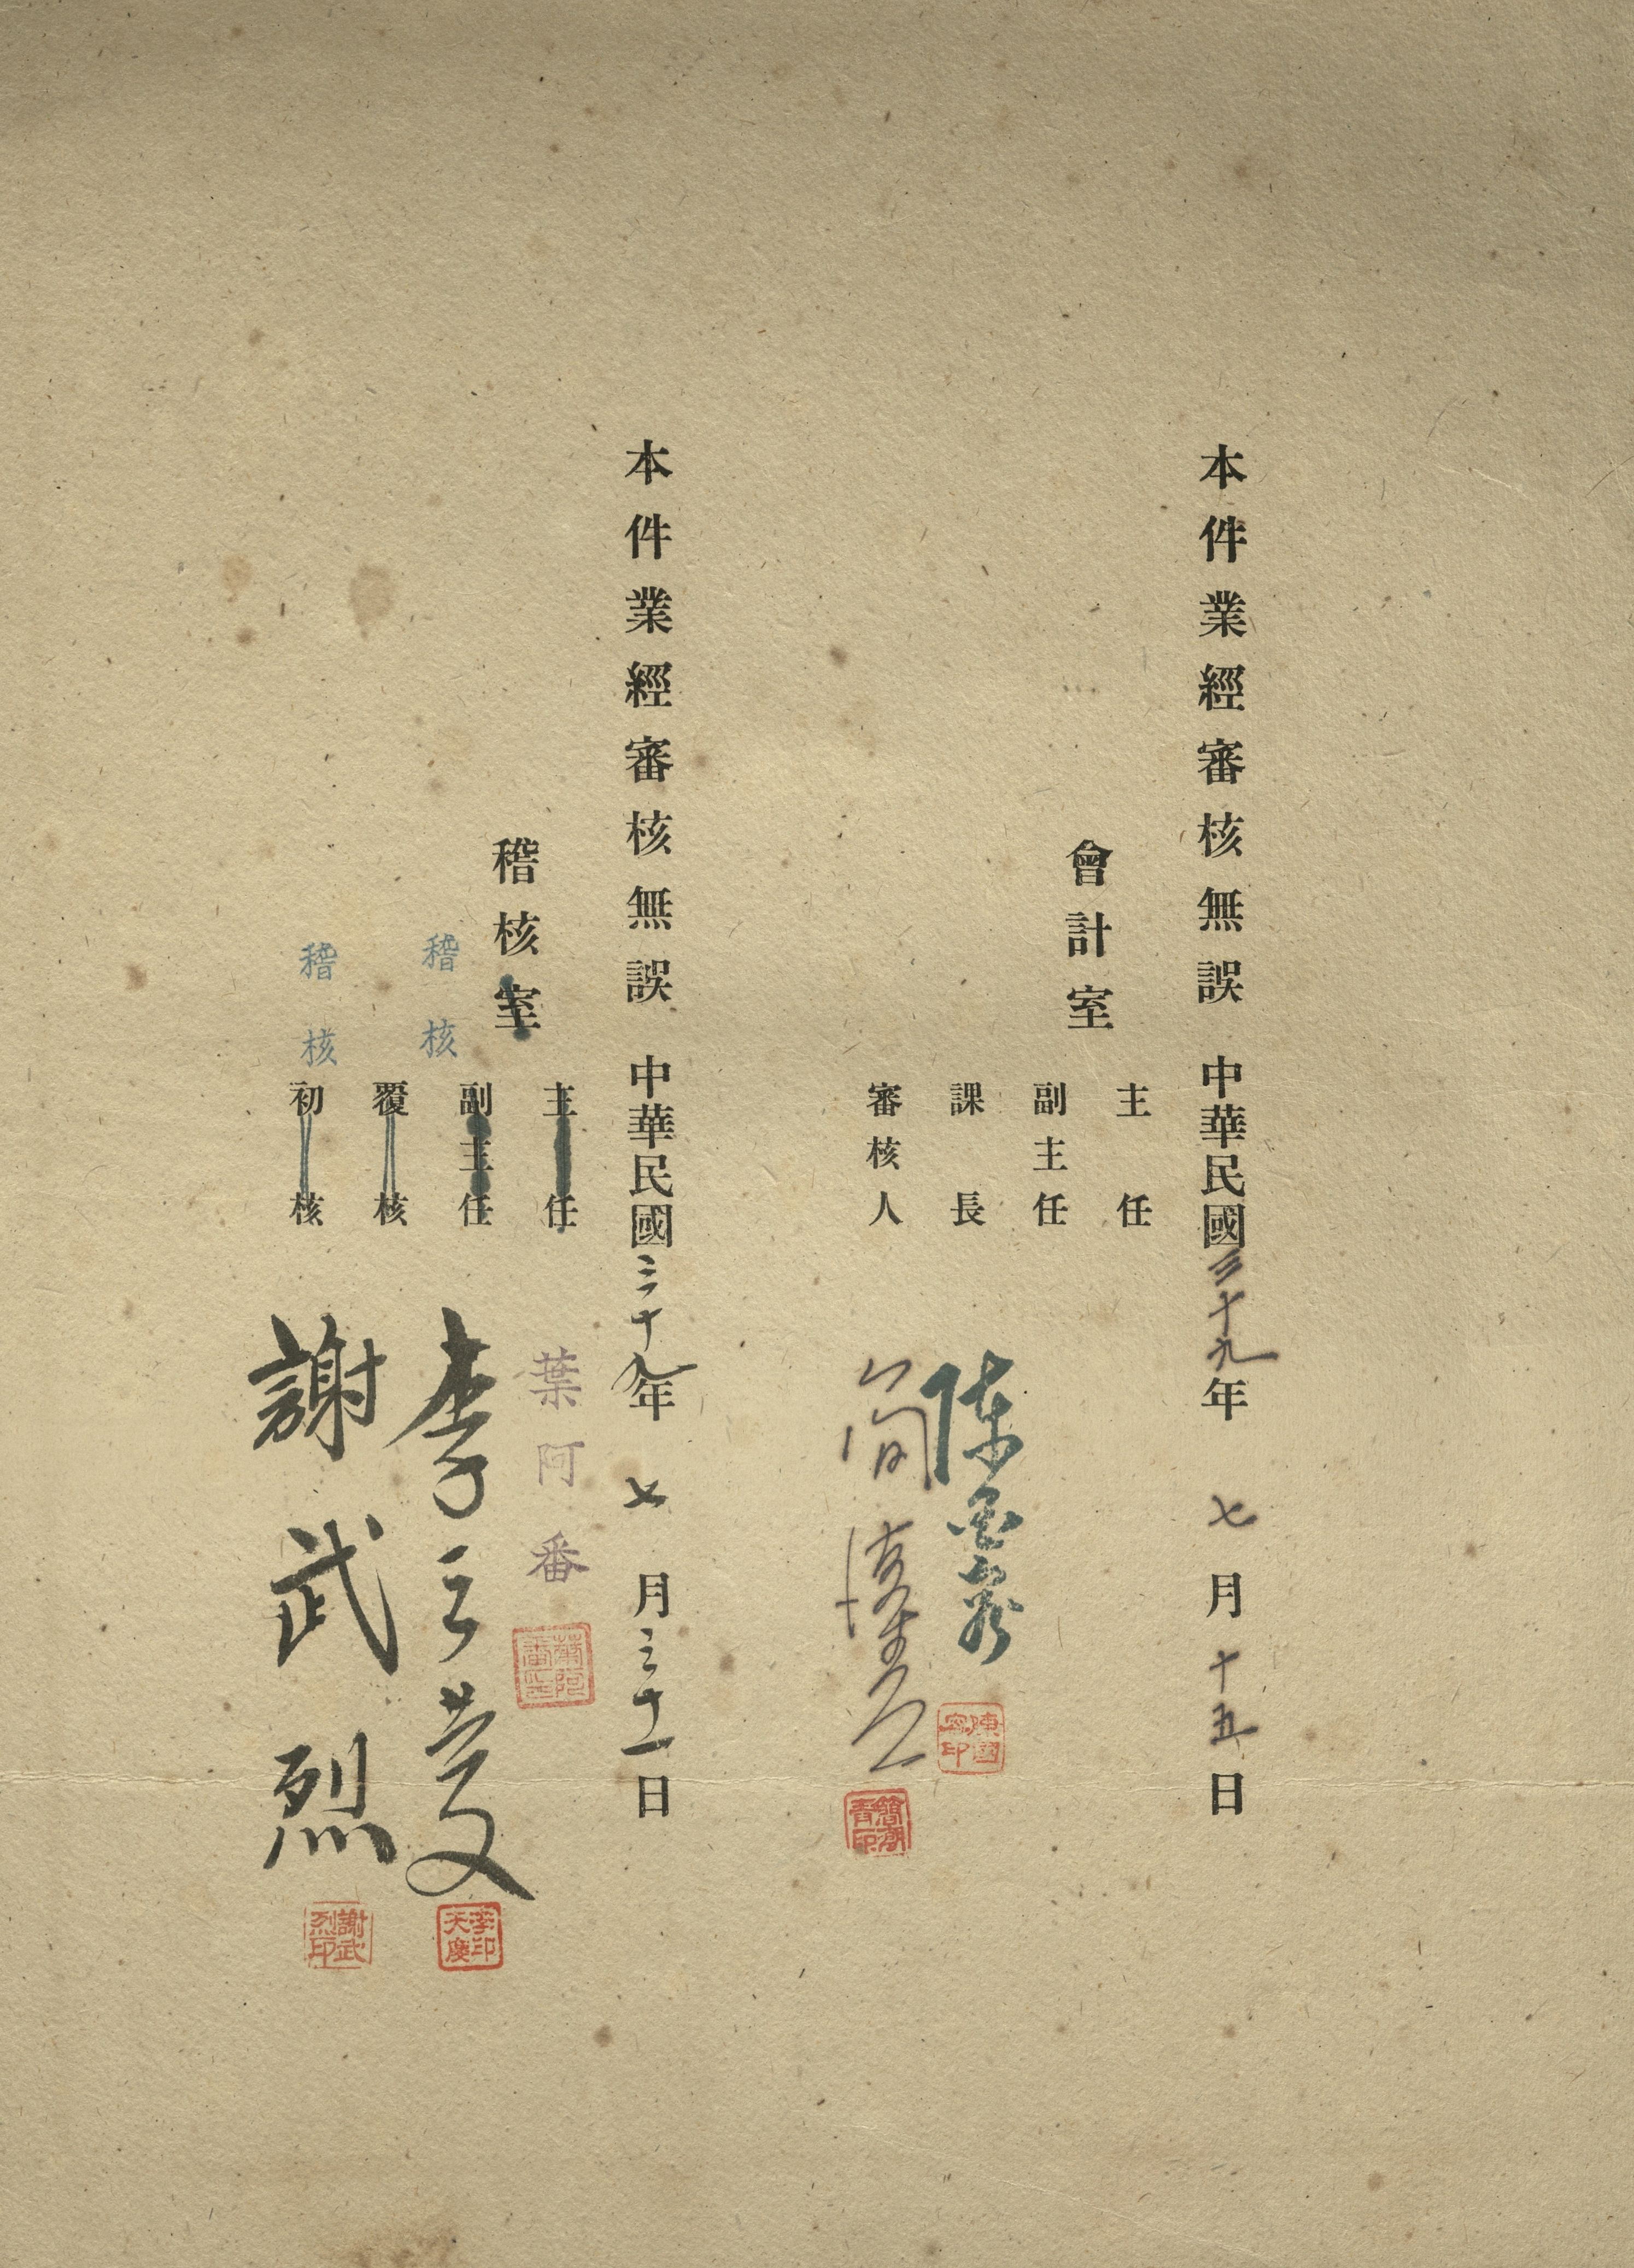 本件業經審核無誤　中華民國三十九年七月十五日
會計室
主任
副主任
課長
審核人
陳國
簡
陳國印
簡青印
本件業經審核無誤　中華民國三十九年七月三十一日
稽核室
主任
副主任
覆核
初核
稽核
稽核
葉阿番
葉阿番
李天慶
李印天慶
謝武烈
謝武烈印